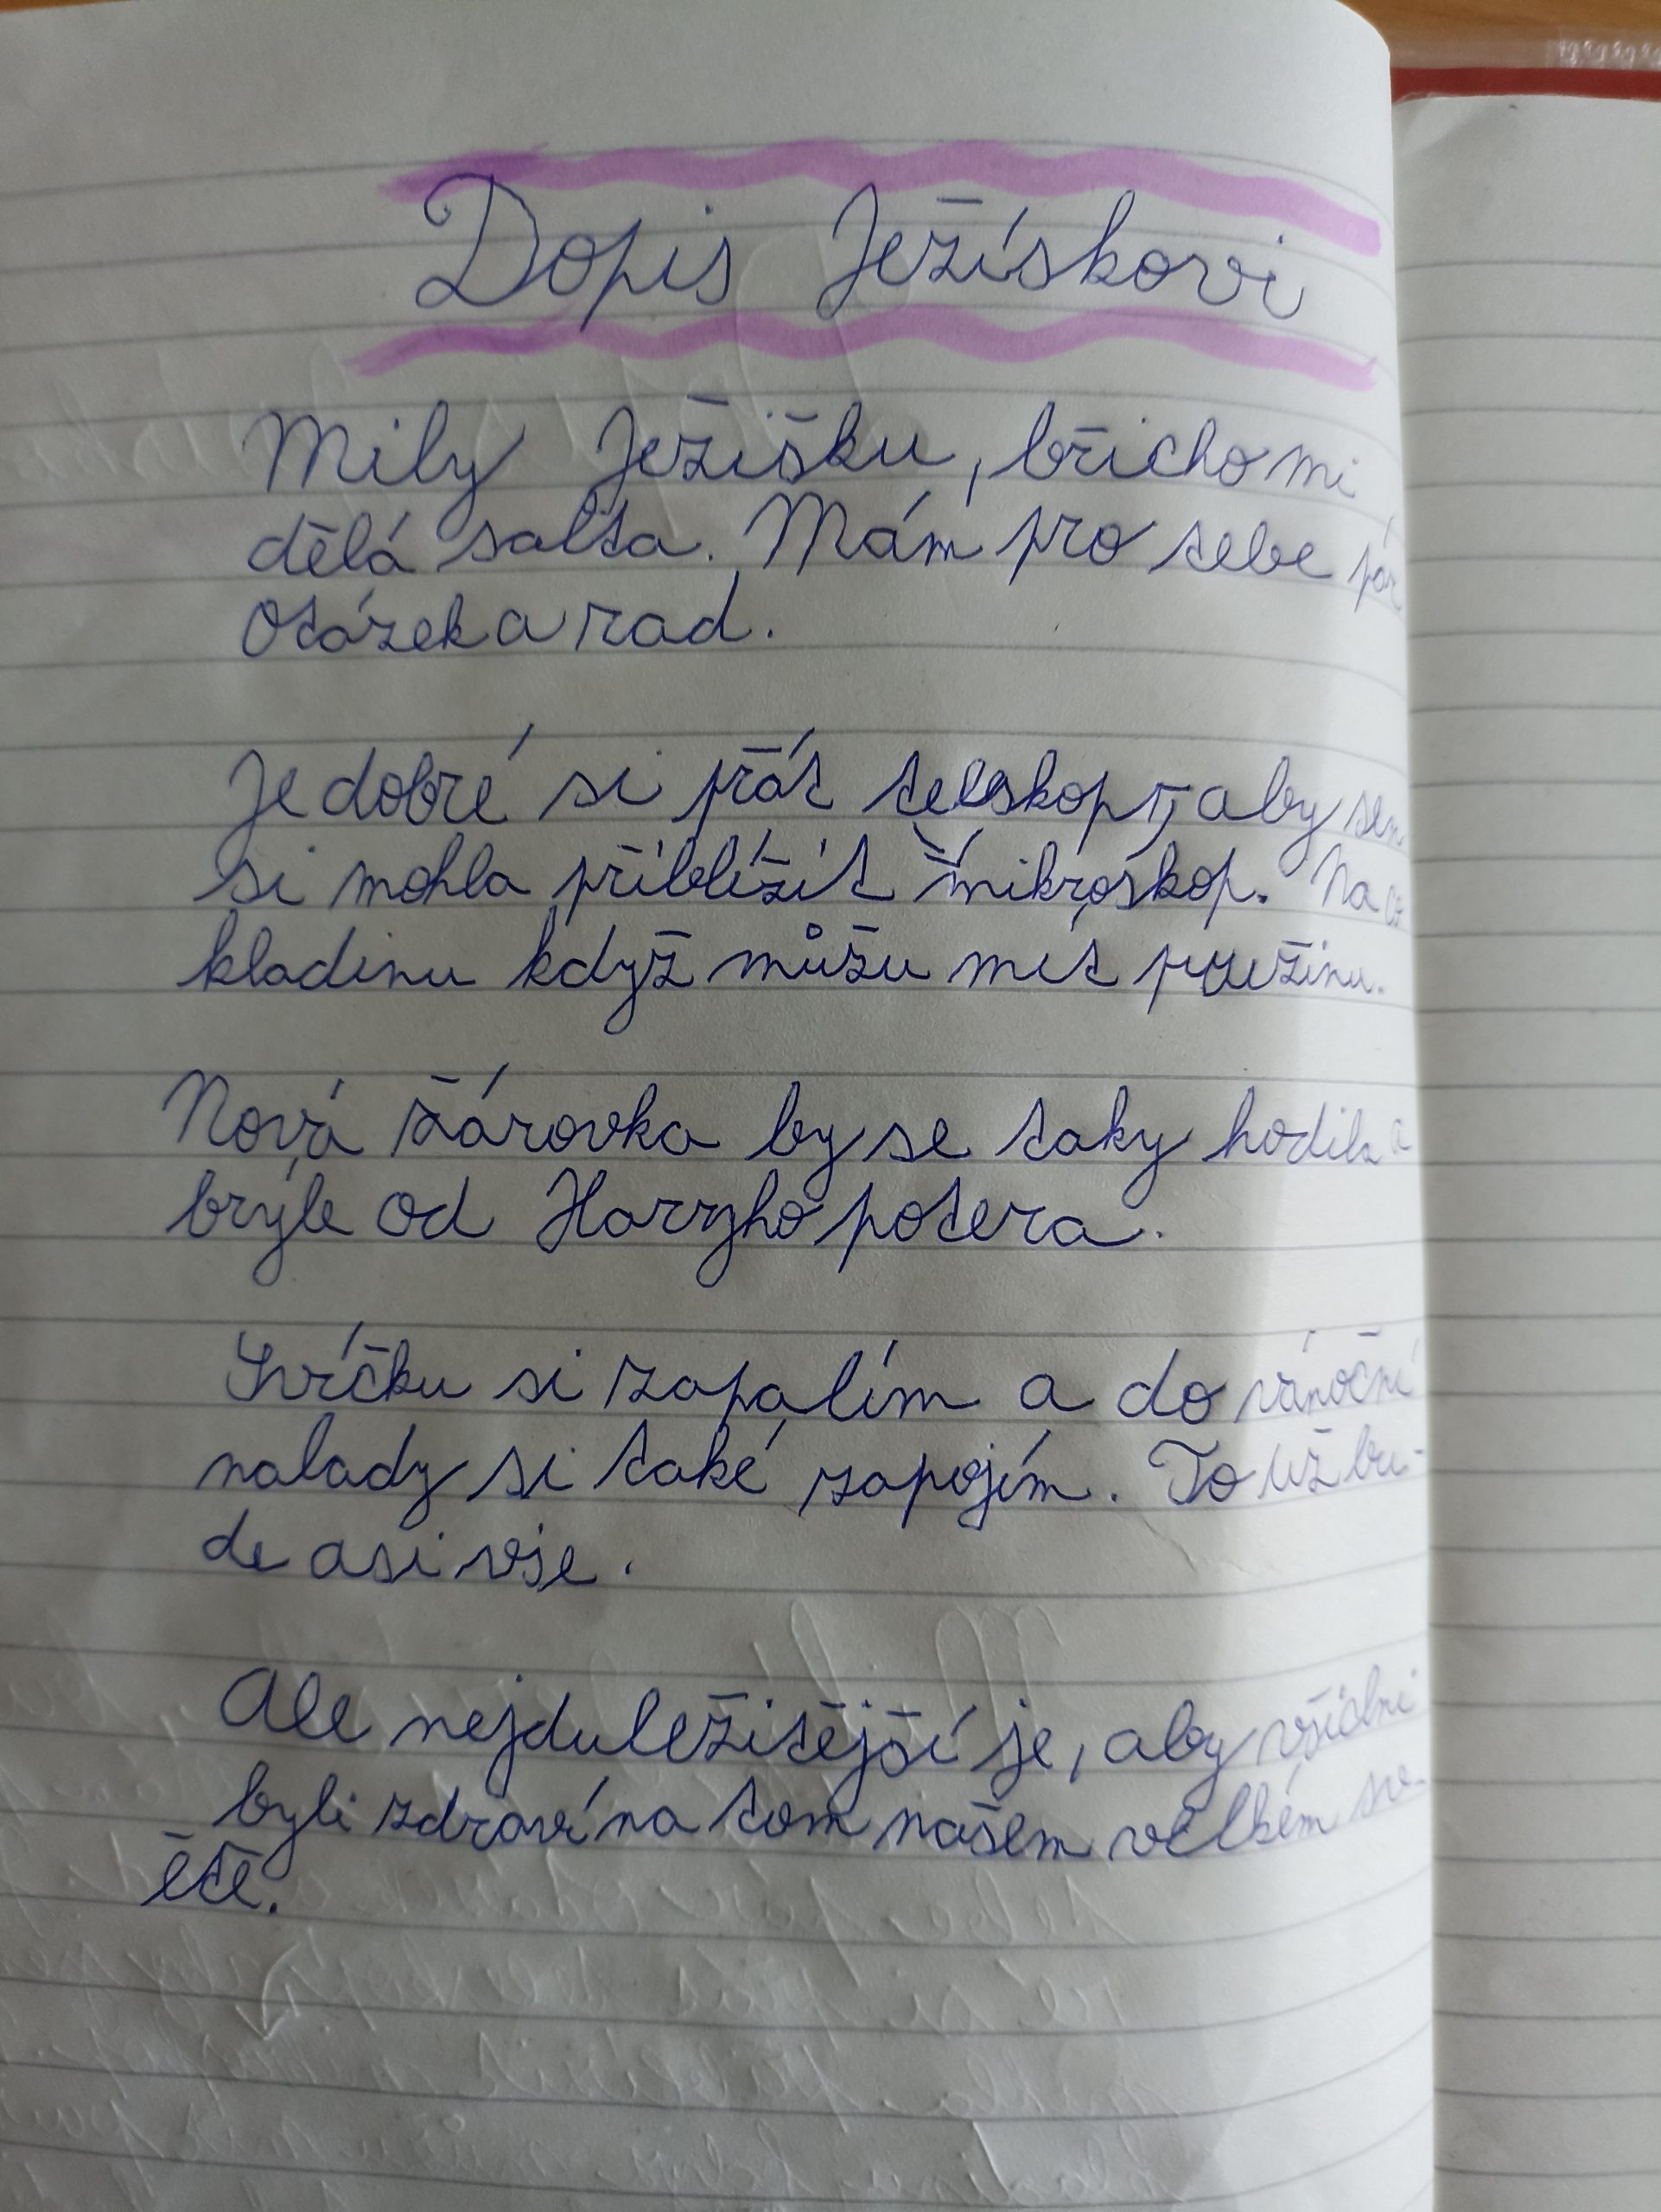 Dopis Ježískovi
Mily Ježišku, břicho mi
dělá salta. Mám pro tebe pár
Otázek a rad.
Je dobré si přát teleskop, aby sem
si mohla přiblížit mikroskop. Na co
kladinu když můžu mít pružinu.
Nová žárovka by se taky hodila a
brýle od Harryho potera.
Svíčku si zapalím a do vánoční
nalady si také zapojím. To už bu-
de asi vše.
Ale nejduležitější je, aby všichni
byli zdraví na tom našem velkém sv-
ětě.